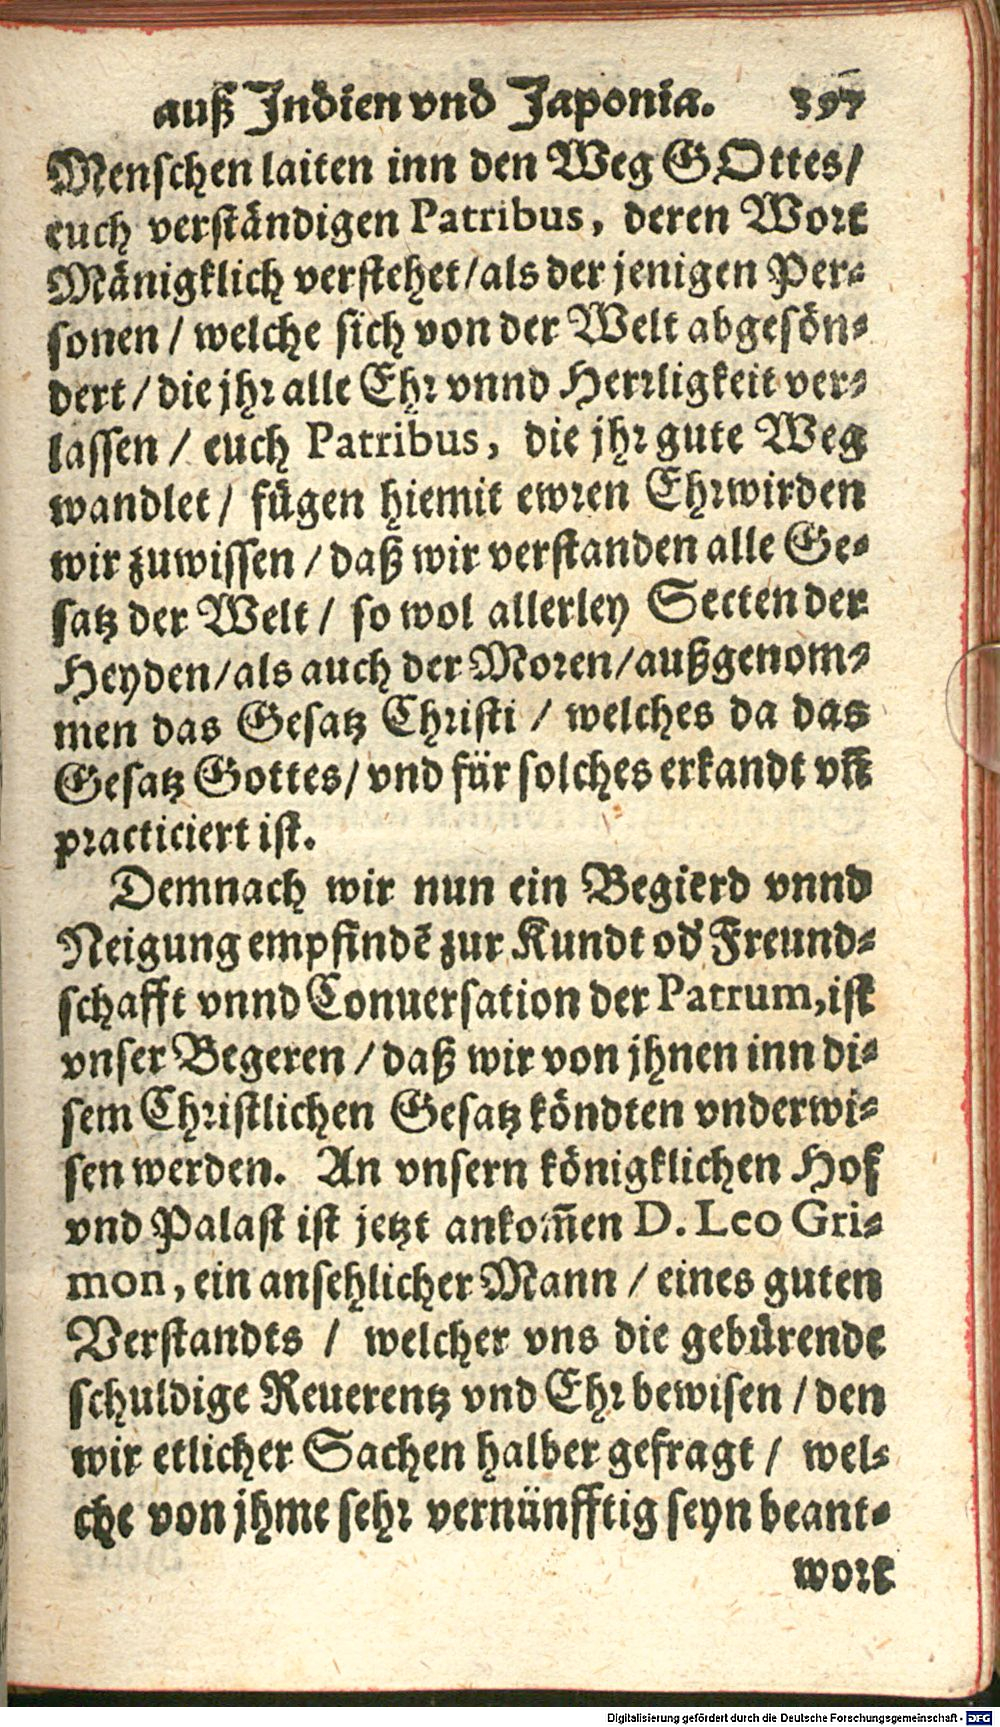 auß Indien vnd Japonia. 397
Menschen laiten inn den Weg GOttes/
euch verständigen Patribus, deren Wort
Mänigklich verstehet/als der jenigen Per-
sonen / welche sich von der Welt abgesön-
dert / die jhr alle Ehr vnnd Herrligkeit ver-
lassen / euch Patribus, die jhr gute Weg
wandlet / fügen hiemit ewren Ehrwirden
wir zuwissen / daß wir verstanden alle Ge-
satz der Welt / so wol allerley Secten der
Heyden/als auch der Moren/außgenom-
men das Gesatz Christi / welches da das
Gesatz Gottes/ vnd für solches erkandt vn̄
practiciert ist.
Demnach wir nun ein Begierd vnnd
Neigung empfindē zur Kundt od' Freund-
schafft vnnd Conuersation der Patrum, ist
vnser Begeren / daß wir von jhnen inn di-
sem Christlichen Gesatz köndten vnderwi-
sen werden. An vnsern königklichen Hof
vnd Palast ist jetzt ankom̄en D. Leo Gri-
mon, ein ansehlicher Mann / eines guten
Verstandts / welcher vns die gebürende
schuldige Reuerentz vnd Ehr bewisen / den
wir etlicher Sachen halber gefragt / wel-
che von jhme sehr vernünfftig seyn beant-
wort
Digitalisierung gefördert durch die Deutsche Forschungsgemeinschaft - DFG